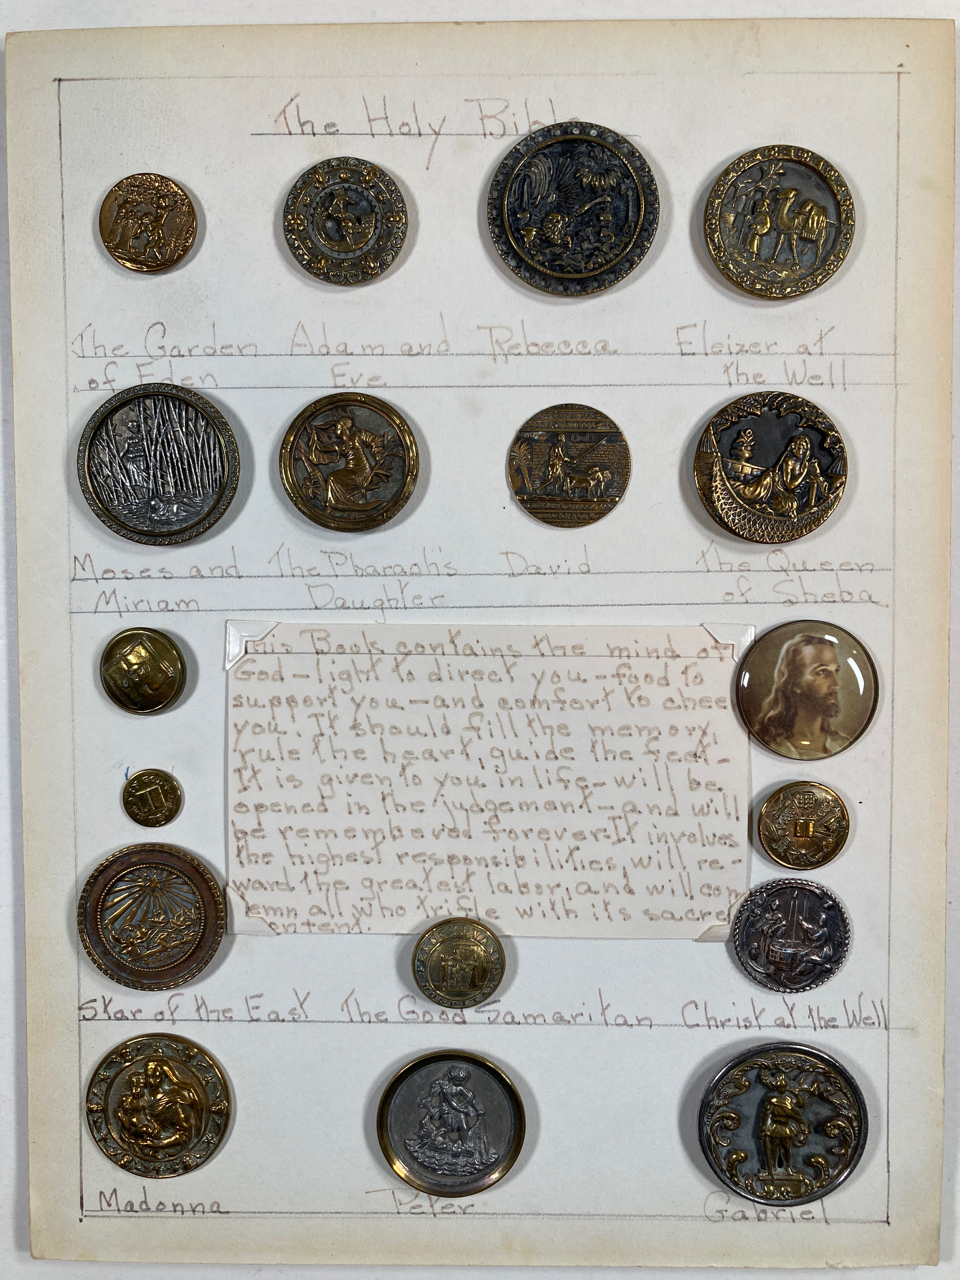 The Holy Bible
The Garden Adam and Rebecca Eleizer at
of Eden Eve the Well
Moses and The Pharaoh's David The Queen
Miriam Daughter of Sheba
This Book contains the mind of
God - light to direct you - food to
support you - and comfort to chee
you. It should fill the memory,
rule the heart, guide the feet -
It is given to you in life - will be
opened in the judgement - and will
be remembered forever. It involves
the highest responsibilities, will re-
ward the greatest labor, and will con
demn all who trifle with its sacred
contend.
Star of the East The Good Samaritan Christ at the Well
Madonna Peter Gabriel